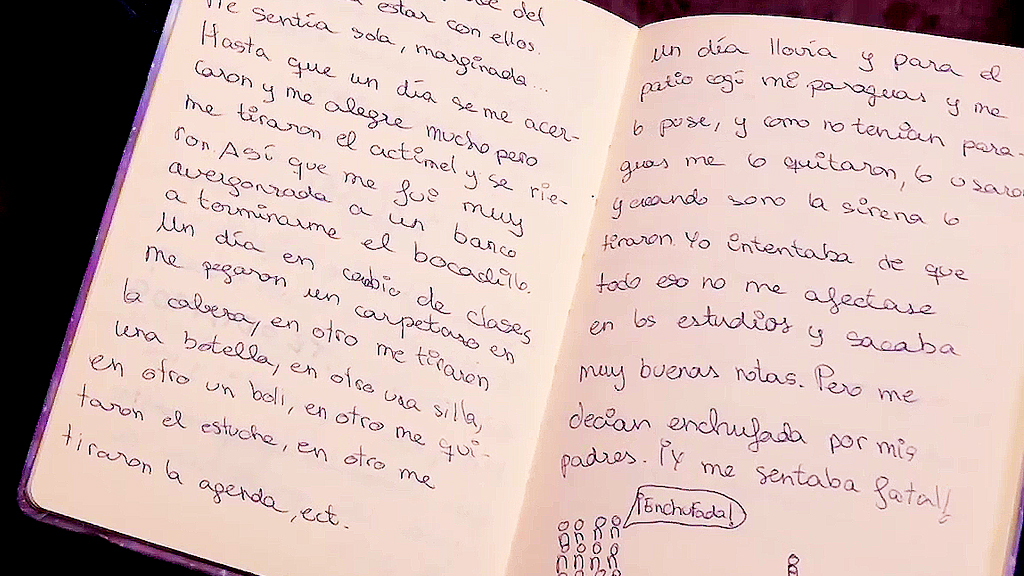 del
a estar con ellos.
Me sentía sola, marginada...
Hasta que un día se me acer-
caron y me alegre mucho pero
me tiraron el actimel y se rie-
ron. Así que me fui muy
avergonzada a un banco
a terminarme el bocadillo.
Un día en cambio de clases
me pegaron un carpetazo en
la cabeza, en otro me tiraron
una botella, en otro una silla,
en otro un boli, en otro me qui-
taron el estuche, en otro me
tiraron la agenda, ect.
un día llovía y para el
patio cogí mi paraguas y me
lo puse, y como no tenían para-
guas me lo quitaron, lo usaron
y cuando sono la sirena lo
tiraron. Yo intentaba de que
todo eso no me afectase
en los estudios y sacaba
muy buenas notas. Pero me
decían enchufada por mis
padres. ¡Y me sentaba fatal!
¡Enchufada!